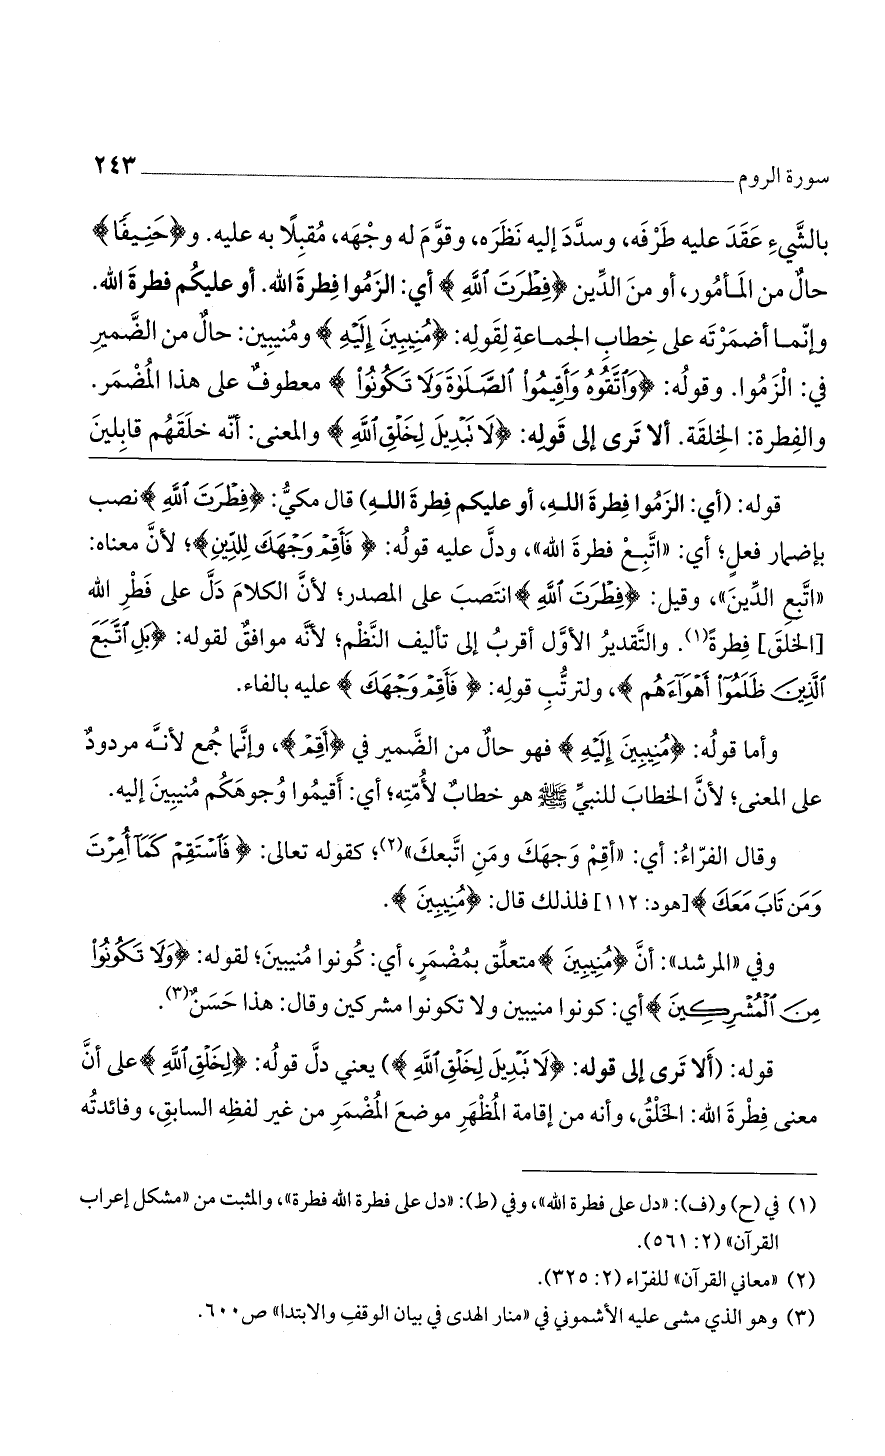 سورة الروم ــــــــــــــــــــ ٢٤٣
بالشَّيءِ عَقَدَ عليه طَرْفَه، وسدَّدَ إليه نَظَرَه، وقوَّمَ له وجْهَه، مُقبِلًا به عليه. و﴿حَنِيفًا﴾
حالٌ من المَأمُور، أو منَ الدِّين ﴿فِطْرَتَ ٱللَّهِ﴾ أي: الزَمُوا فِطرةَ الله. أو عليكُم فطرةَ الله.
وإنّما أضمَرْتَه على خِطابِ الجماعةِ لِقَولِه: ﴿مُنِيبِينَ إِلَيْهِ﴾ ومُنيبين: حالٌ من الضَّميرِ
في: الْزَمُوا. وقولُه: ﴿وَٱتَّقُوهُ وَأَقِيمُوا۟ ٱلصَّلَوٰةَ وَلَا تَكُونُوا۟﴾ معطوفٌ على هذا المُضْمَر.
والفِطرة: الخِلقَة. ألا تَرى إلى قَولِه: ﴿لَا نَبْدِيلَ لِخَلْقِ ٱللَّهِ﴾ والمعنى: أنّه خلَقَهُم قابِلينَ
قوله: (أي: الزَمُوا فِطرةَ اللهِ، أو عليكم فِطرةَ اللهِ) قال مكيٌّ: ﴿فِطْرَتَ ٱللَّهِ﴾ نصب
بإضمار فعلٍ؛ أي: «اتَّبِعْ فطرةَ الله»، ودلَّ عليه قولُه: ﴿فَأَقِمْ وَجْهَكَ لِلدِّينِ﴾؛ لأنَّ معناه:
«اتَّبعِ الدِّينَ»، وقيل: ﴿فِطْرَتَ ٱللَّهِ﴾ انتَصبَ على المصدر؛ لأنَّ الكلامَ دَلَّ على فَطْرِ الله
[الخلقَ] فِطرةً(١). والتَّقديرُ الأوَّل أقربُ إلى تأليف النَّظْم؛ لأنَّه موافقٌ لقوله: ﴿بَلِ ٱتَّبَعَ
ٱلَّذِينَ ظَلَمُوٓا۟ أَهْوَآءَهُم﴾، ولترتُّبِ قولِه: ﴿فَأَقِمْ وَجْهَكَ﴾ عليه بالفاء.
وأما قولُه: ﴿مُنِيبِينَ إِلَيْهِ﴾ فهو حالٌ من الضَّمير في ﴿أَقِمْ﴾، وإنَّما جُمع لأنَّه مردودٌ
على المعنى؛ لأنَّ الخطابَ للنبيِّ ﷺ هو خطابٌ لأُمّتِه؛ أي: أقيمُوا وُجوهَكُم مُنيبينَ إليه.
وقال الفرّاءُ: أي: «أقِمْ وَجهَكَ ومَنِ اتَّبعكَ»(٢)؛ كقوله تعالى: ﴿فَٱسْتَقِمْ كَمَآ أُمِرْتَ
وَمَن تَابَ مَعَكَ﴾ [هود: ١١٢] فلذلك قال: ﴿مُنِيبِينَ﴾.
وفي «المرشد»: أنَّ ﴿مُنِيبِينَ﴾ متعلِّق بمُضْمَرٍ، أي: كُونوا مُنيبينَ؛ لقوله: ﴿وَلَا تَكُونُوا۟
مِنَ ٱلْمُشْرِكِينَ﴾ أي: كونوا منيبين ولا تكونوا مشركين وقال: هذا حَسَنٌ(٣).
قوله: (أَلا تَرى إلى قوله: ﴿لَا نَبْدِيلَ لِخَلْقِ ٱللَّهِ﴾) يعني دلَّ قولُه: ﴿لِخَلْقِ ٱللَّهِ﴾ على أنَّ
معنى فِطْرةَ الله: الخَلْقُ، وأنه من إقامة المُظْهَرِ موضعَ المُضْمَرِ من غير لفظِه السابقِ، وفائدتُه
(١) في (ح) و(ف): «دل على فطرة الله»، وفي (ط): «دل على فطرة الله فطرة»، والمثبت من «مشكل إعراب
القرآن» (٢: ٥٦١).
(٢) «معاني القرآن» للفرّاء (٢: ٣٢٥).
(٣) وهو الذي مشى عليه الأشموني في «منار الهدى في بيان الوقفِ والابتدا» ص٦٠٠.